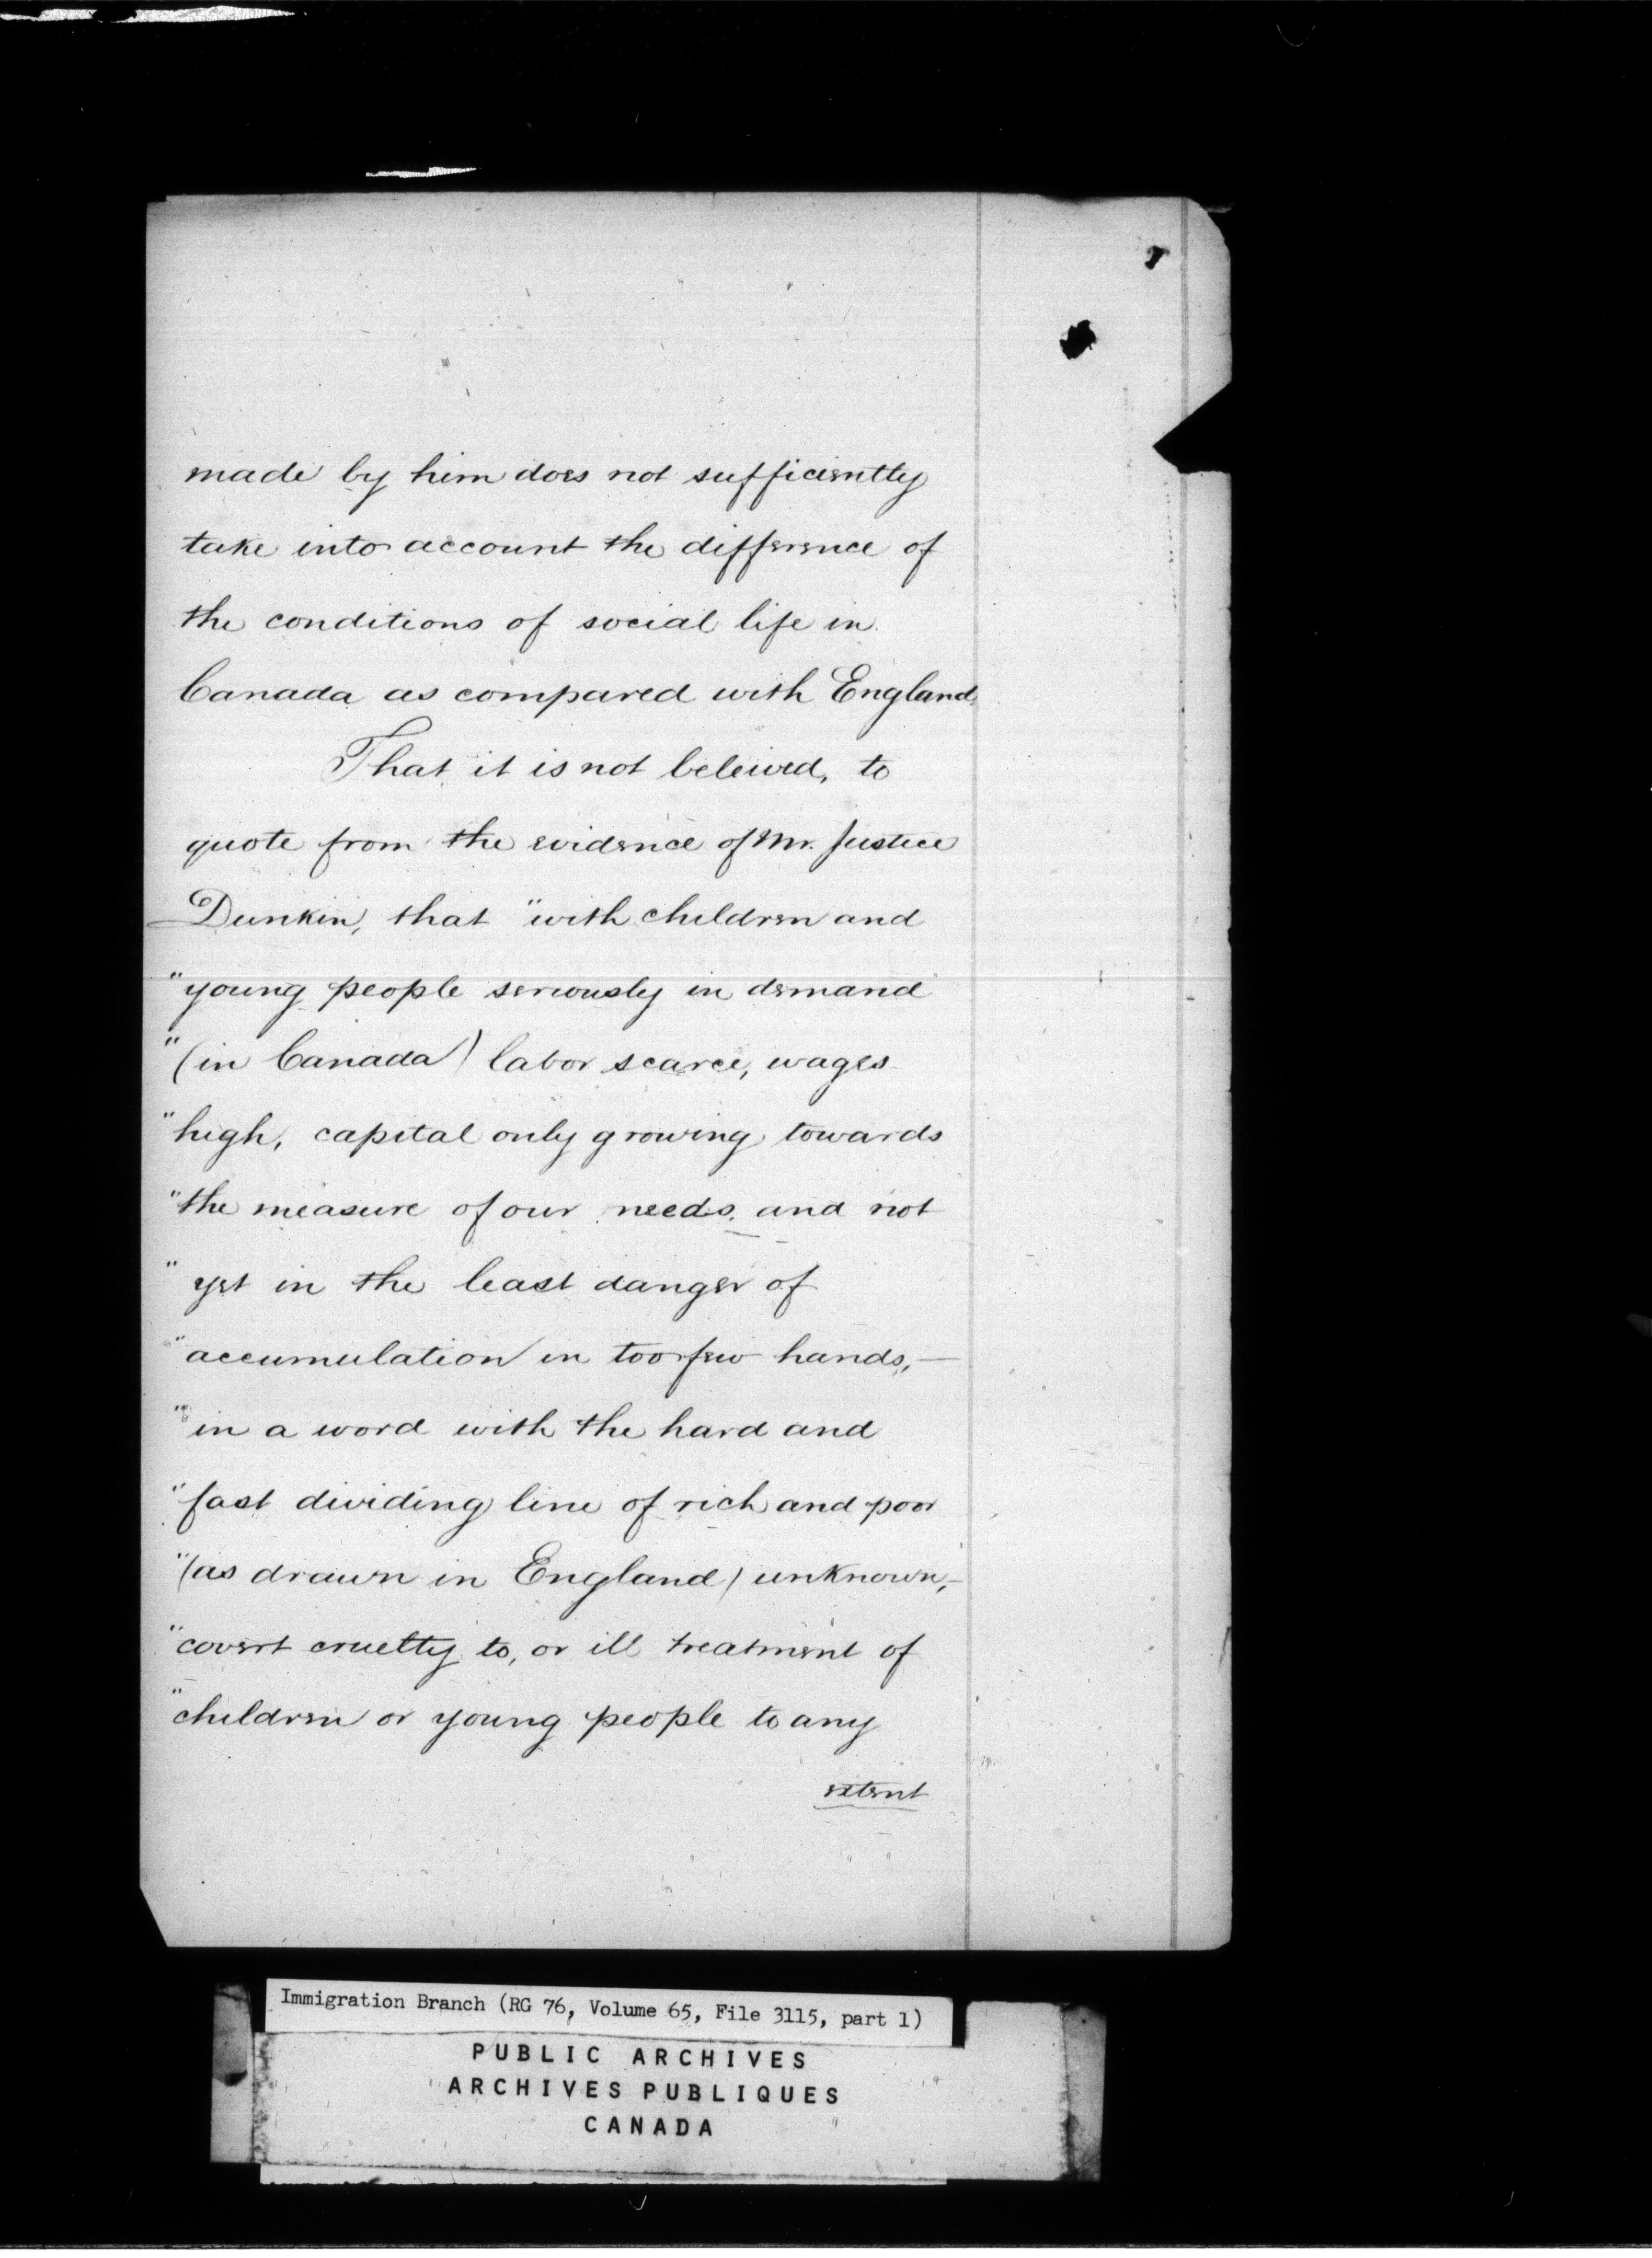 made by him does not sufficiently
take into account the difference of
the conditions of social life in
Canada as compared with England,
That it is not beleived, to
quote from the evidence of Mr. Justice
Dunkin, that "with children and
"young people seriously in demand
"(in Canada) labor scarce, wages
"high, capital only growing towards
"the measure of our needs, and not
"yet in the least danger of
"accumulation in too few hands,—
"in a word with the hard and
"fast dividing line of rich and poor
"(as drawn in England) unknown,—
"covert cruelty to, or ill treatment of
"children or young people to any
extent
Immigration Branch (RG 76, Volume 65, File 3115, part 1)
PUBLIC ARCHIVES
ARCHIVES PUBLIQUES
CANADA